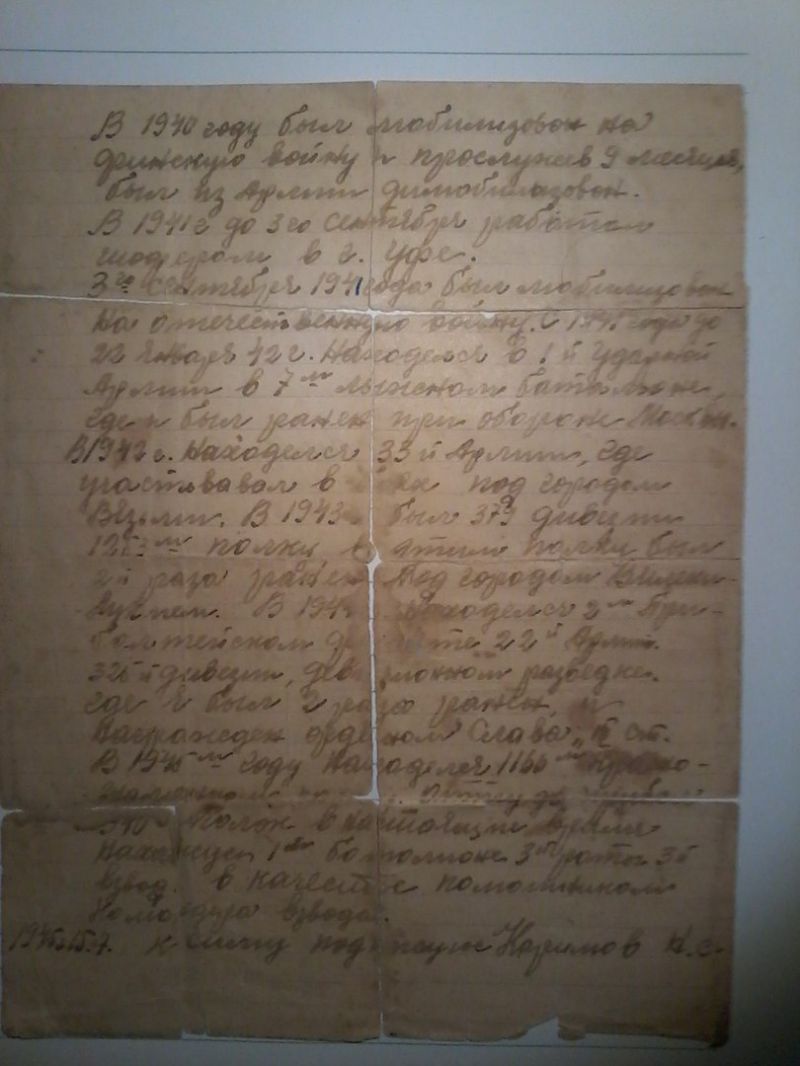 В 1940 году был мобилизован на
финскую войну и прослужив 9 месяцев,
был из Армии димобилизован.
В 1941 г до 3 го Сентября работал
шофером в г. Уфе.
3го Сентября 1941 года был мобилизован
на отечественную войну. С 1941 года до
22 Января 42 г. Находелся в 1й Ударной
Армии в 7 ми лыжном батальоне,
где и был ранен при обороне Москвы.
В 1942 г. Находелся 33 й Армии, где
участвавал в под городом
Вязьми. В 1943 был 379 дивезии
полку в этим полку был
2й раза ранен под городом Велики-
Лукием. В Находелся 2 ом При-
болтейском 22й Армии.
дивезии, разведке.
где я был 2 раза ранен, и
награжден орденом Слава
В 1945 году Находелся 1160
полк в настоящи время
нахожусь 1ом ботолионе 3й роты 3й
взвод. в качестве помошником
Командира взвода.
к сему подписуюс Каримов